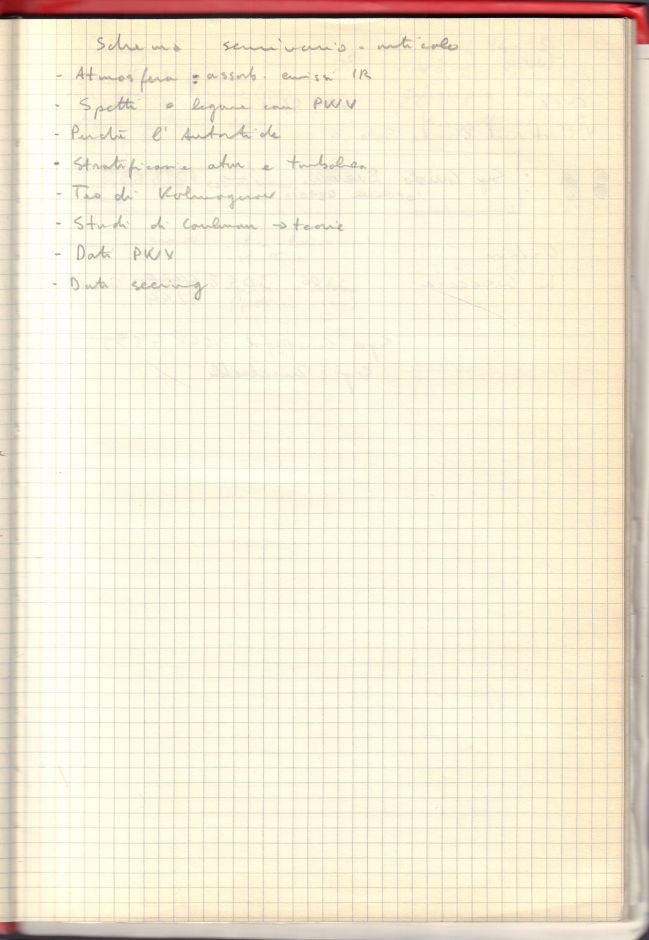 Schema seminario - articolo
- Atmosfera : assorb. emiss IR
- Spettri e legame con PWV
- Perché l'Antartide
- Stratificazione atm e turbolenza
- Teo di Kolmogorov
- Studi di Coulman → teorie
- Dati PWV
- Dati seeing